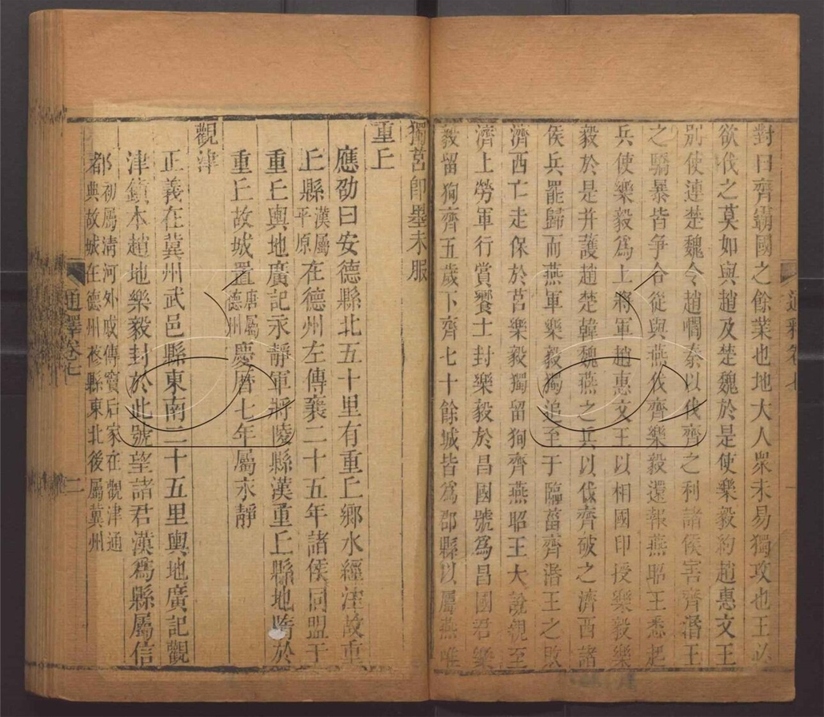 對曰齊霸國之餘業也地大人眾未易獨攻也王必
欲伐之莫如與趙及楚魏於是使樂毅約趙惠文王
別使連楚魏令趙嚪秦以伐齊之利諸侯害齊湣王
之驕暴皆爭合從與燕伐齊樂毅還報燕昭王悉起
兵使樂毅為上將軍趙惠文王以相國印授樂毅樂
毅於是并護趙楚韓魏燕之兵以伐齊破之濟西諸
侯兵罷歸而燕軍樂毅獨追至于臨菑齊湣王之敗
濟西亡走保於莒樂毅獨留狥齊燕昭王大說親至
濟上勞軍行賞饗士封樂毅於昌國號為昌國君樂
毅留狥齊五歲下齊七十餘城皆為郡縣以屬燕唯
獨莒即墨未服
重丘
應劭曰安德縣北五十里有重丘鄉水經注故重
丘縣漢屬平原在德州左傳襄二十五年諸侯同盟于
重丘輿地廣記永靜軍將陵縣漢重丘縣地隋於
重丘故城置唐屬德州慶曆七年屬永靜
觀津
正義在冀州武邑縣東南二十五里輿地廣記觀
津鎮本趙地樂毅封於此號望諸君漢為縣屬信
都初屬清河外戚傳竇后家在觀津通典故城在德州蓚縣東北後屬冀州
通釋卷七
二